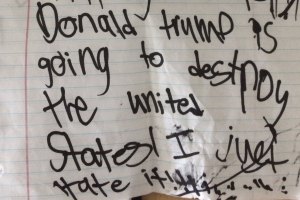 Donald trump is
going to destpoy
the united
States! I just
Hate it!!!